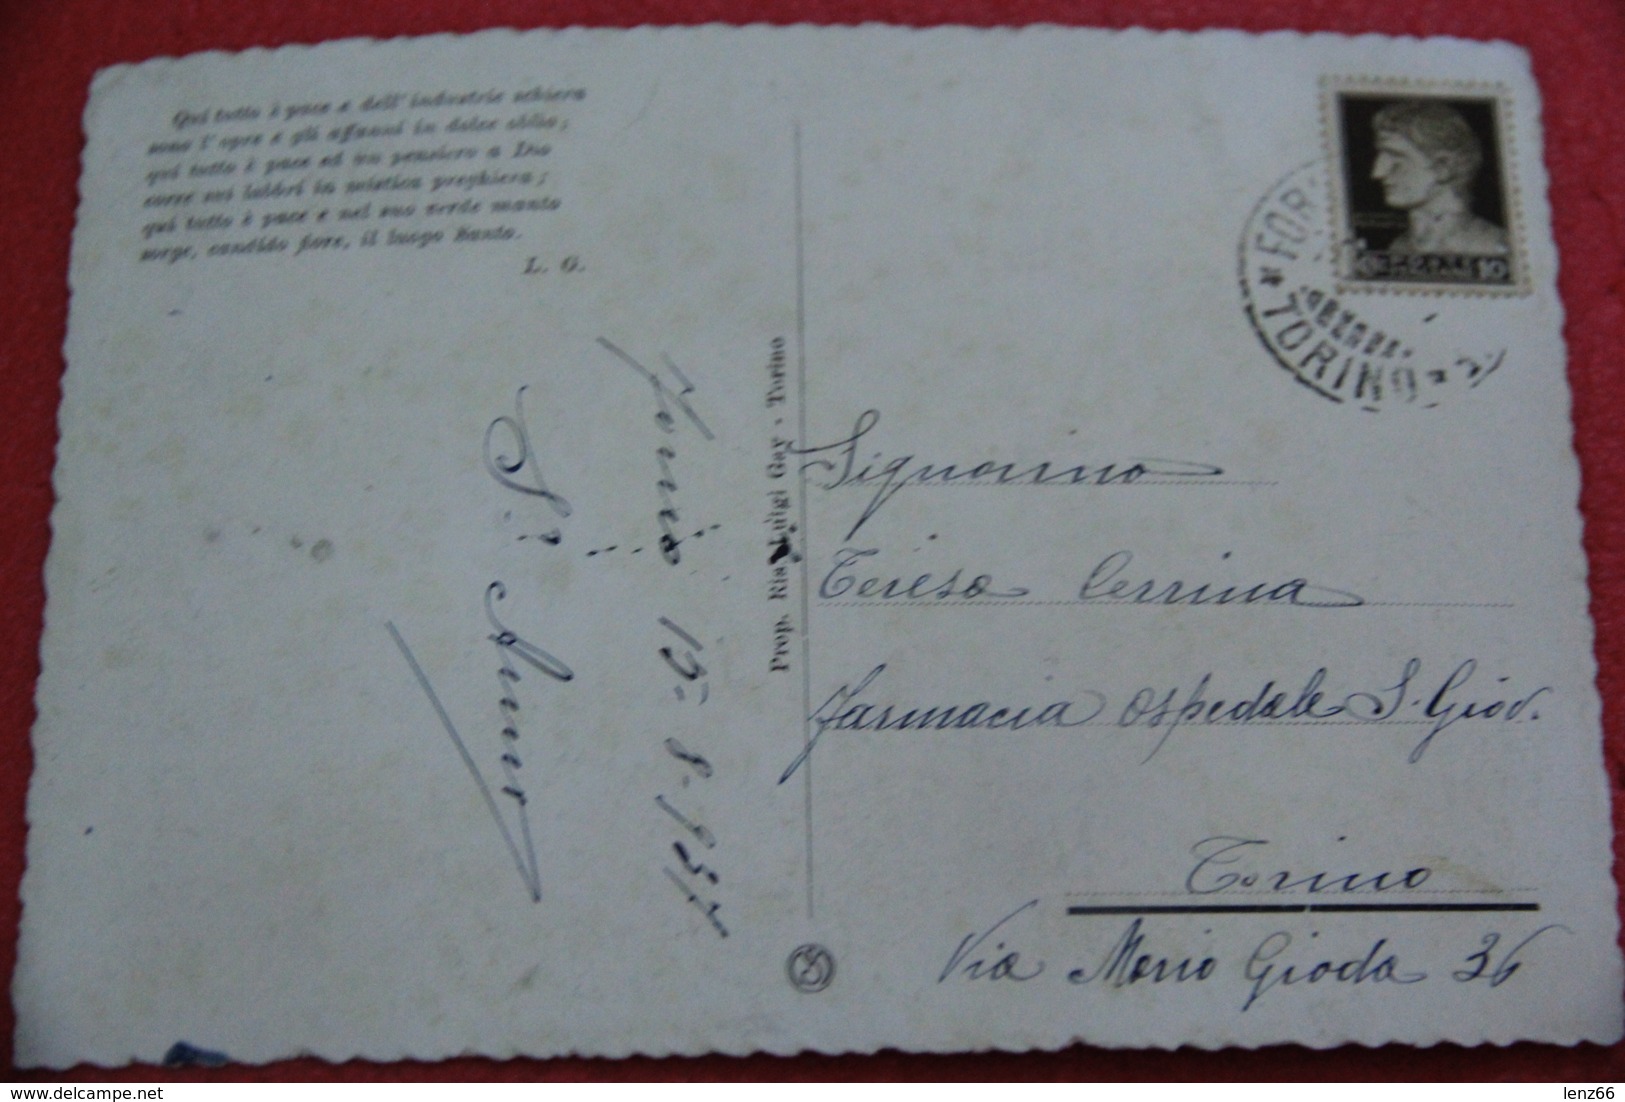 Qui tutto è pace e dell'industrie schiera
sono l'opre e gli affanni in dolce oblio;
qui tutto è pace ed un pensiero a Dio
corre sui labbri in mistica preghiera;
qui tutto è pace e nel suo verde manto
sorge, candido fiore, il luogo Santo.
L. G.
10
FOR
TORINO
Prop. Ris. Luigi Gay - Torino
Forno 15-8-937
Signorina
Teresa Cerrina
Farmacia Ospedale S. Giov.
Torino
Via Mario Gioda 36
lenz66